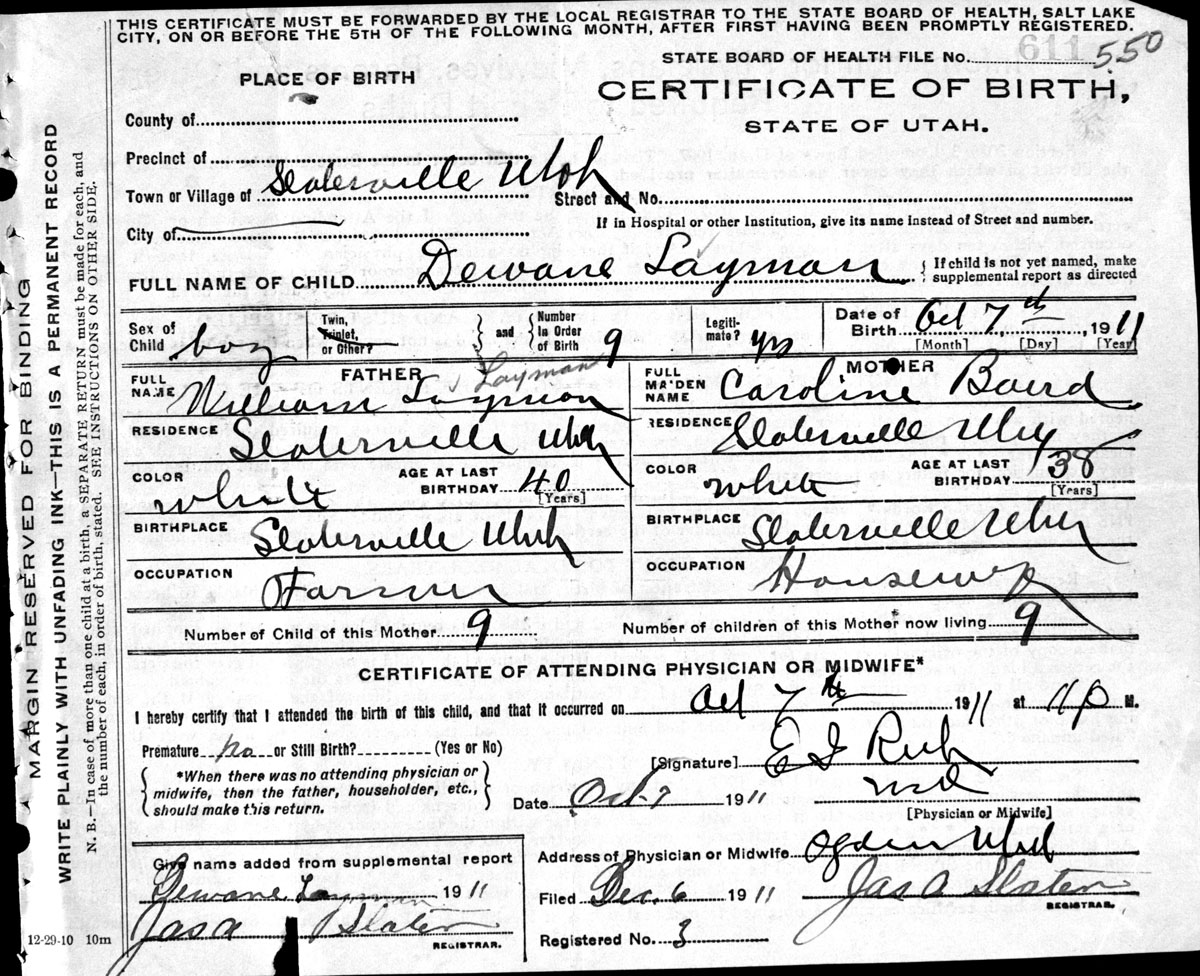 THIS CERTIFICATE MUST BE FORWARDED BY THE LOCAL REGISTRAR TO THE STATE BOARD OF HEALTH, SALT LAKE
CITY, ON OR BEFORE THE 5TH OF THE FOLLOWING MONTH, AFTER FIRST HAVING BEEN PROMPTLY REGISTERED.
STATE BOARD OF HEALTH FILE No. 611 550
PLACE OF BIRTH
CERTIFICATE OF BIRTH,
STATE OF UTAH.
County of
Precinct of
Town or Village of Slaterville Utah Street and No.
If in Hospital or other Institution, give its name instead of Street and number.
City of
FULL NAME OF CHILD Dewane Layman { If child is not yet named, make
supplemental report as directed
Sex of Child boy Twin, Triplet, or Other? } and { Number in Order of Birth 9 Legiti-mate? yrs Date of Birth Oct 7th 1911
[Month] [Day] [Year]
FATHER
FULL NAME William Layman Layman
MOTHER
FULL MAIDEN NAME Caroline Baird
RESIDENCE Slaterville Utah
RESIDENCE Slaterville Utah
COLOR white AGE AT LAST BIRTHDAY 40 [Years]
COLOR white AGE AT LAST BIRTHDAY 38 [Years]
BIRTHPLACE Slaterville Utah
BIRTHPLACE Slaterville Utah
OCCUPATION Farmer
OCCUPATION Housewife
Number of Child of this Mother 9 Number of children of this Mother now living 9
CERTIFICATE OF ATTENDING PHYSICIAN OR MIDWIFE*
I hereby certify that I attended the birth of this child, and that it occurred on Oct 7th 1911 at 11 p M.
Premature no or Still Birth? (Yes or No)
{ *When there was no attending physician or
midwife, then the father, householder, etc.,
should make this return. }
[Signature] E I Rich
M D
[Physician or Midwife]
Date Oct 7 1911
Address of Physician or Midwife Ogden Utah
Give name added from supplemental report
Dewane Layman 1911
Jas A Slater
REGISTRAR.
Filed Dec. 6 1911 Jas A Slater
REGISTRAR.
Registered No. 3
12-29-10 10m
MARGIN RESERVED FOR BINDING
WRITE PLAINLY WITH UNFADING INK—THIS IS A PERMANENT RECORD
N. B.—In case of more than one child at a birth, a SEPARATE RETURN must be made for each, and
the number of each, in order of birth, stated. SEE INSTRUCTIONS ON OTHER SIDE.